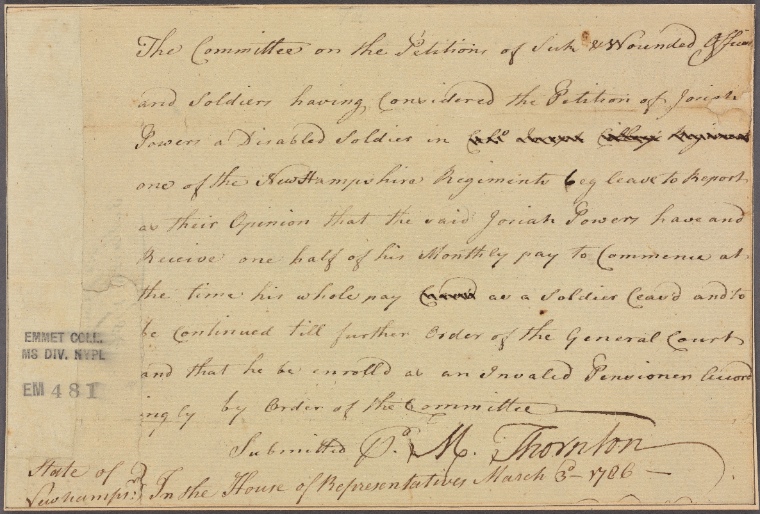 The Committee on the Petitions of Sick & Wounded Officers
and Soldiers having Considered the Petition of Josiah
Powers a Disabled Soldier in
one of the New Hampshire Regiments beg leave to Report
as their Opinion that the said Josiah Powers have and
Receive one half of his Monthly pay to Commence at
the time his whole pay as a Soldier Ceas'd and to
be Continued till further Order of the General Court
and that he be enrolld as an Invaled Pensioner Accord
ingly by Order of the Committee
Submitted Pr. M. Thornton
State of
Newhampr. } In the House of Representatives March 3d 1786
EMMET COLL.
MS DIV. NYPL
EM 481